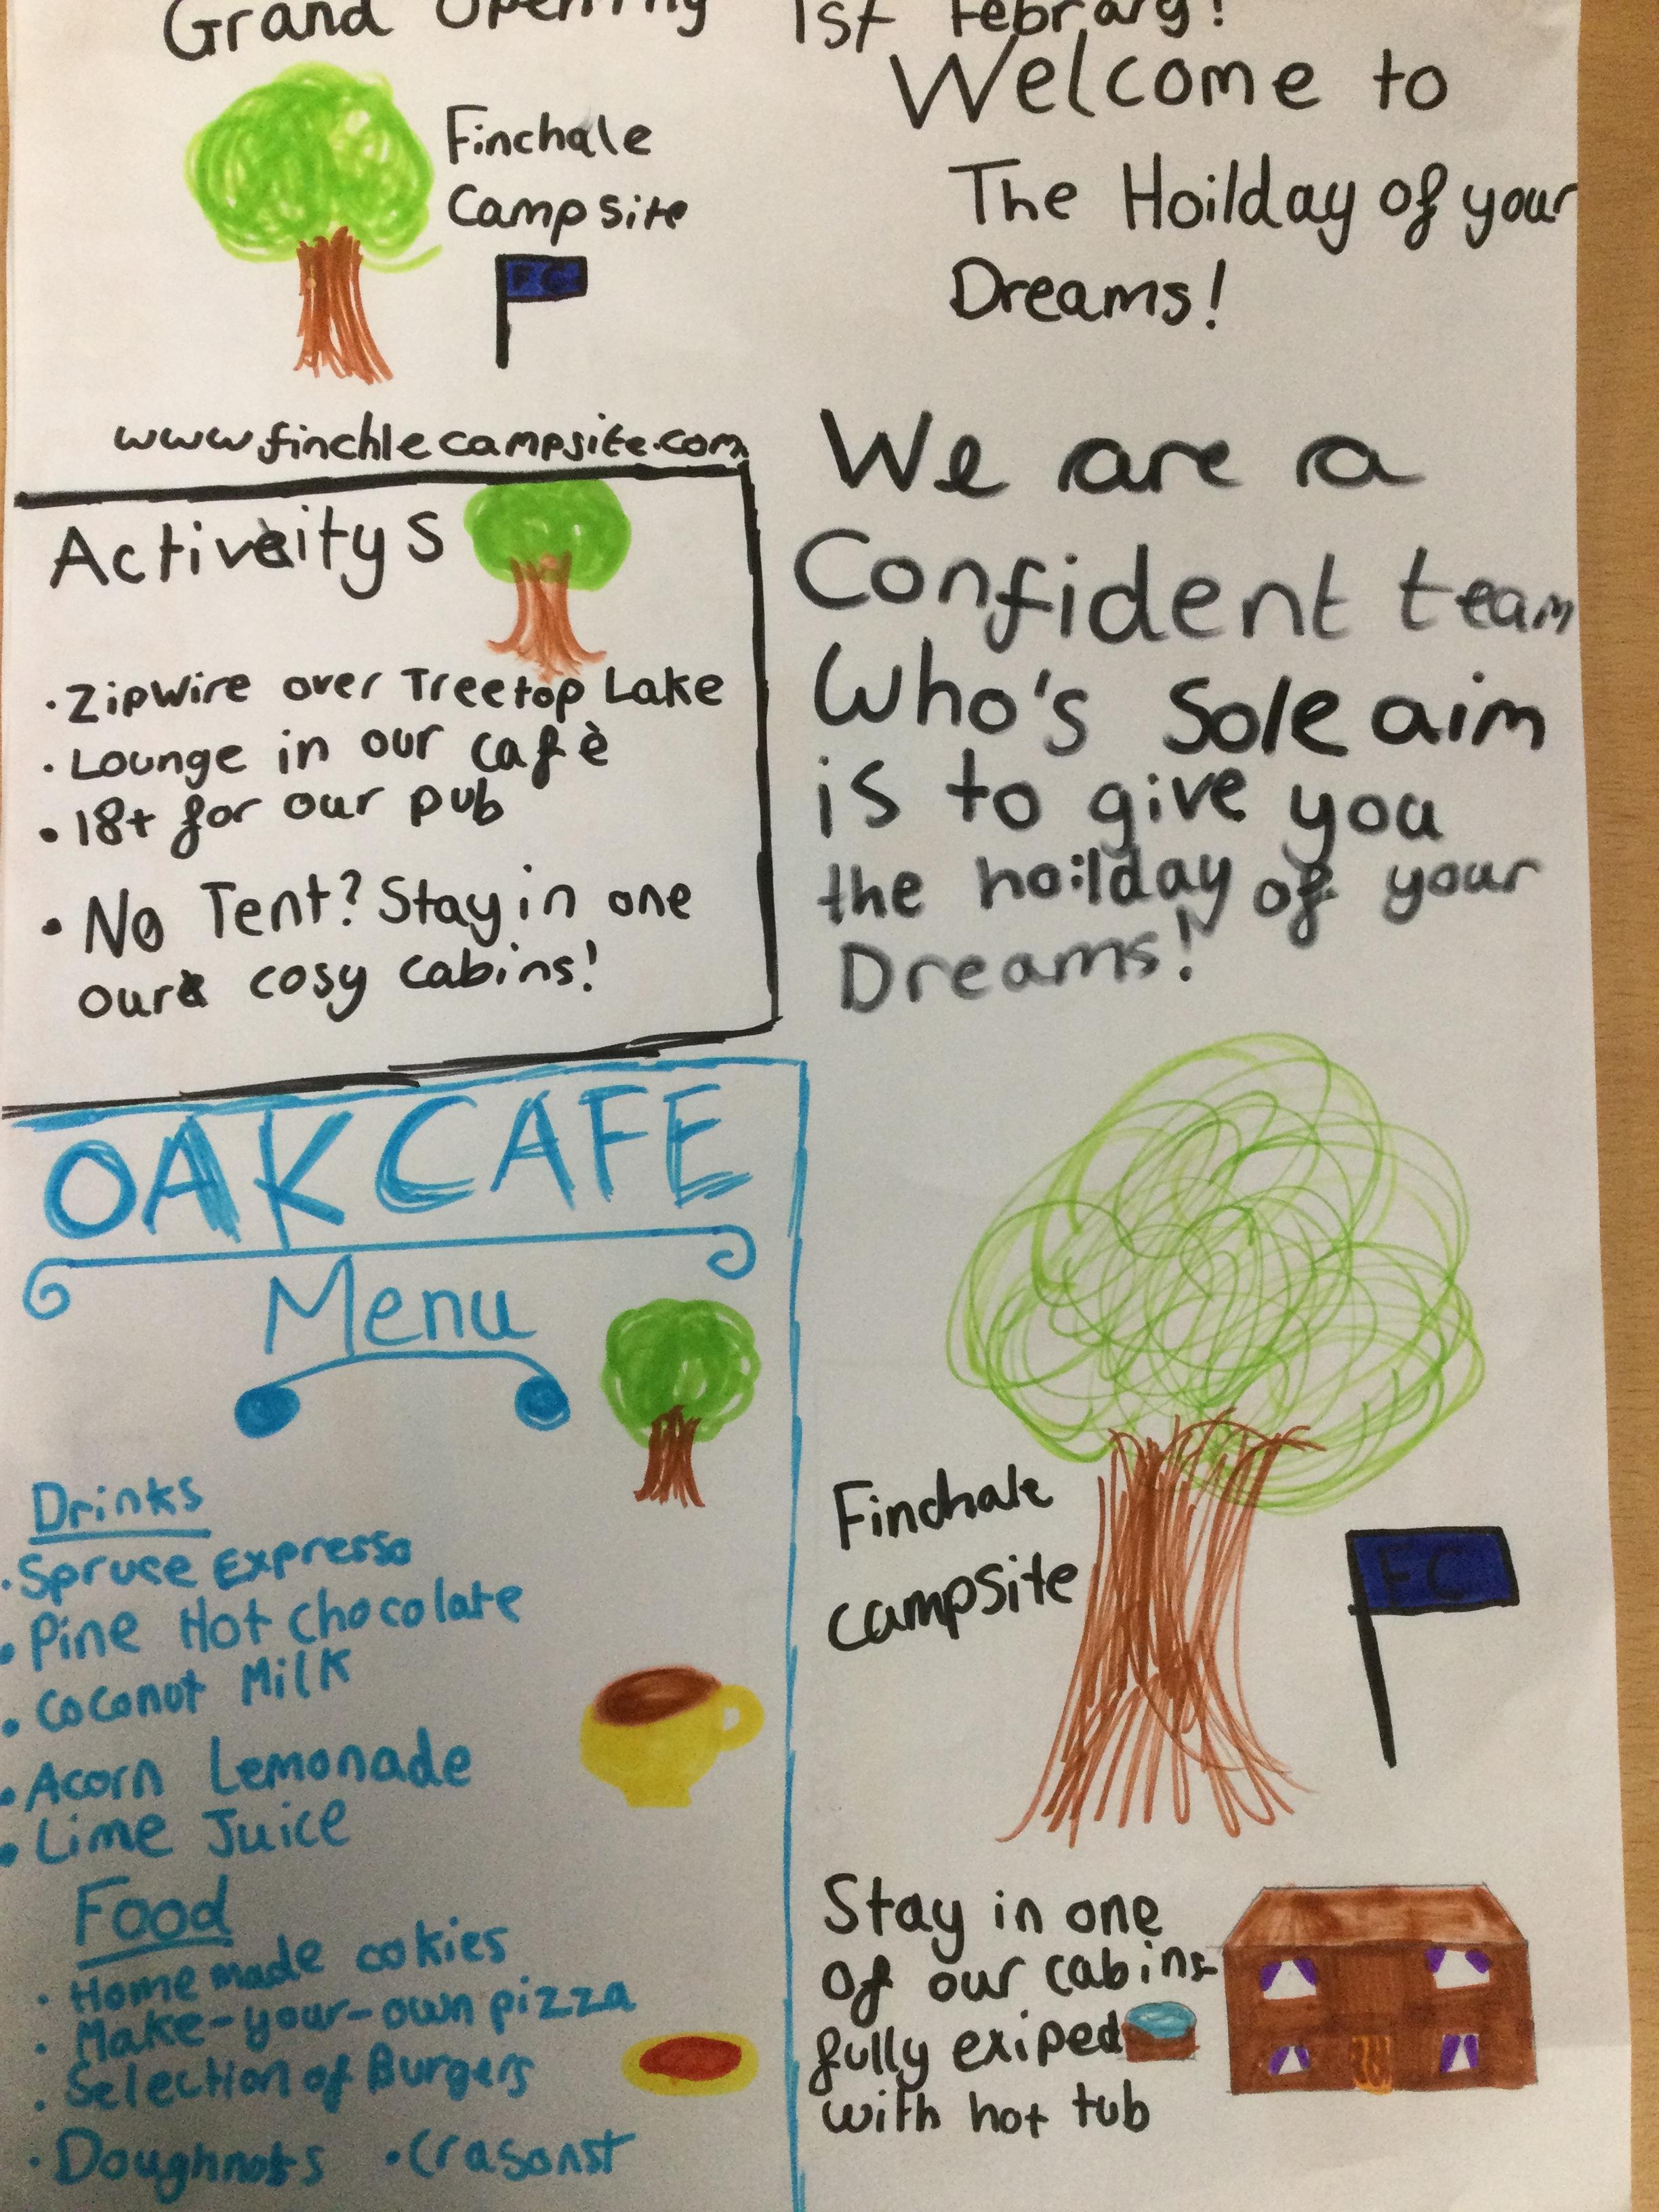 Grand Opening 1st Februarg!
Finchale
Campsite
FC
www.finchlecampsite.com
Welcome to
The Hoilday of your
Dreams!
We are a
Confident team
Who's Sole aim
is to give you
the hoilday of your
Dreams!
Activeitys
· ZipWire over Treetop Lake
· Lounge in our cafè
· 18+ for our pub
· No Tent? Stay in one
our cosy cabins!
OAK CAFE
Menu
Drinks
· Spruce Expresso
· Pine Hot chocolate
· Coconut Milk
· Acorn Lemonade
· Lime Juice
Food
· Homemade cokies
· Make-your-own pizza
· Selection of Burgers
· Doughnots · Crasonst
Finchale
campsite
FC
Stay in one
of our cabins
fully exiped
with hot tub